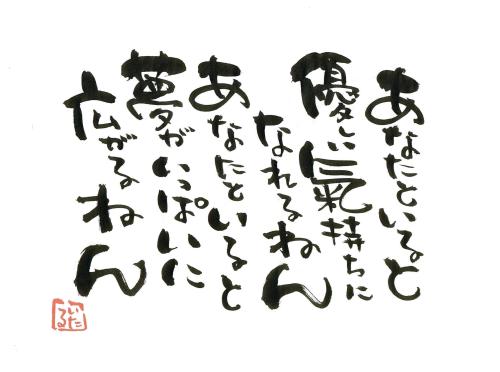 あなたといると
優しい氣持ちに
なれるねん
あなたといると
夢がいっぱいに
広がるねん